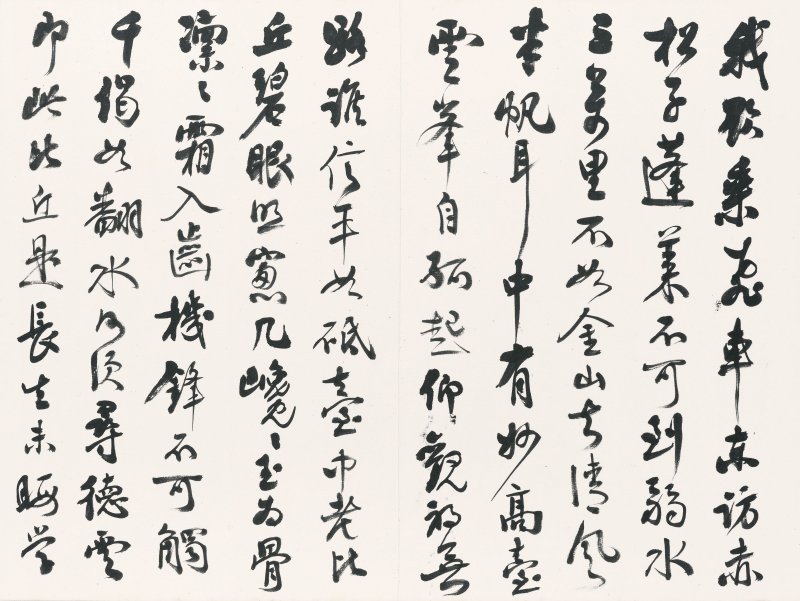 我欲乘飛車東訪赤
松子蓬萊不可到弱水
三萬里不如金山去清風
半帆耳中有妙高臺
雲峯自孤起仰觀初無
路誰信平如砥臺中老比
丘碧眼照窻几巉〻玉為骨
凜〻霜入齒機鋒不可觸
千偈如翻水何須尋德雲
即此比丘是長生未暇学